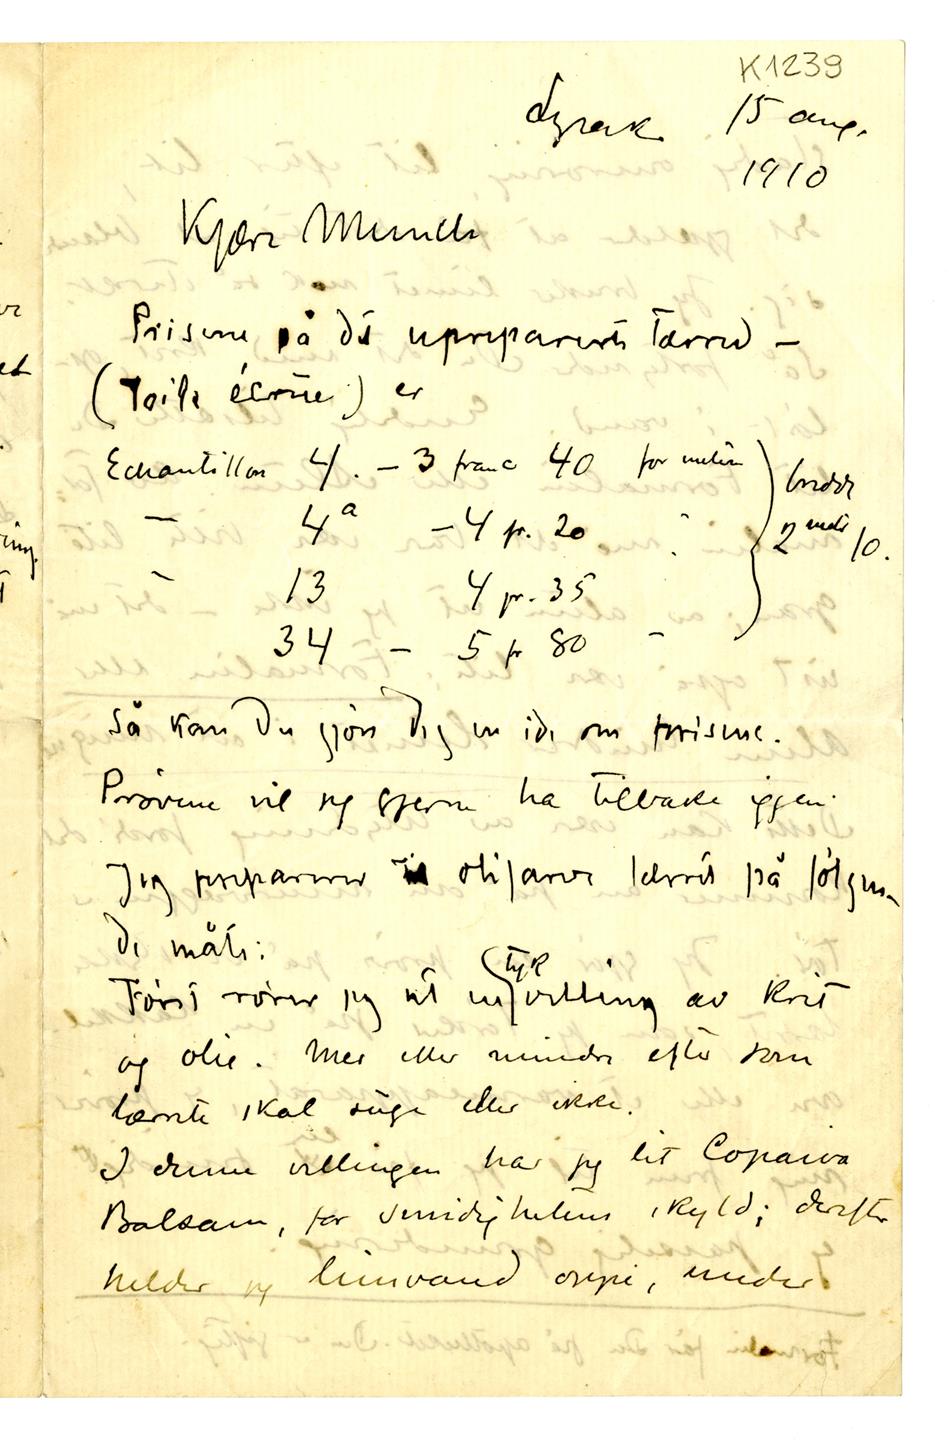 K1239
Lysak 15 aug.
1910
Kjære Munch
Prisene på det upreparerte Lærred –
(Toile écrue) er
Echantillon 4. – 3 franc 40 for meteren
– 4a – 4 fr. 20 "
– 13 4 fr. 35
34 – 5 fr 80 –
bredde
2 meter 10.
Så kan Du gjøre Dig en ide om prisene.
Prøvene vil jeg gjerne ha tilbake igjen.
Jeg preparerer oljefarve lærret på følgen-
de måte:
Først rører jeg ut en tyk velling av krit
og olie. Mer eller mindre efter som
lærretet skal suge eller ikke.
I denne vellingen har jeg lit Copaiva
Balsam, for smidighetens skyld; derefter
helder jeg limvand oppi, under